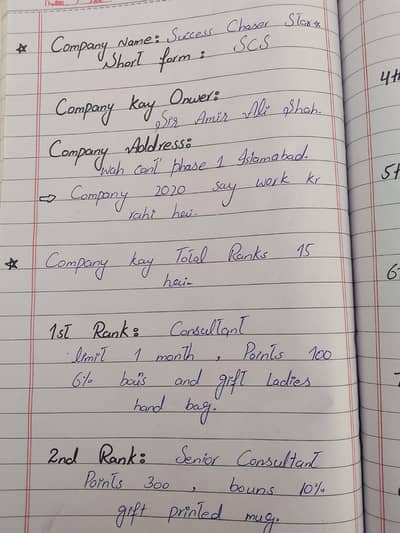 Company Name: Success Chaser Stars
Short form: SCS
Company kay Onwer:
Sir Amir Ali Shah.
Company Address:
wah cant phase 1 Islamabad.
⇒ Company 2020 say work kr
rahi hai.
Company kay Total Ranks 15
hai-
1st Rank: Consultant
limit 1 month, Points 100
6% bouis and gift Ladies
hand bag.
2nd Rank: Senior Consultant
Points 300, bouns 10%
gift printed mug.
4th
5th
6